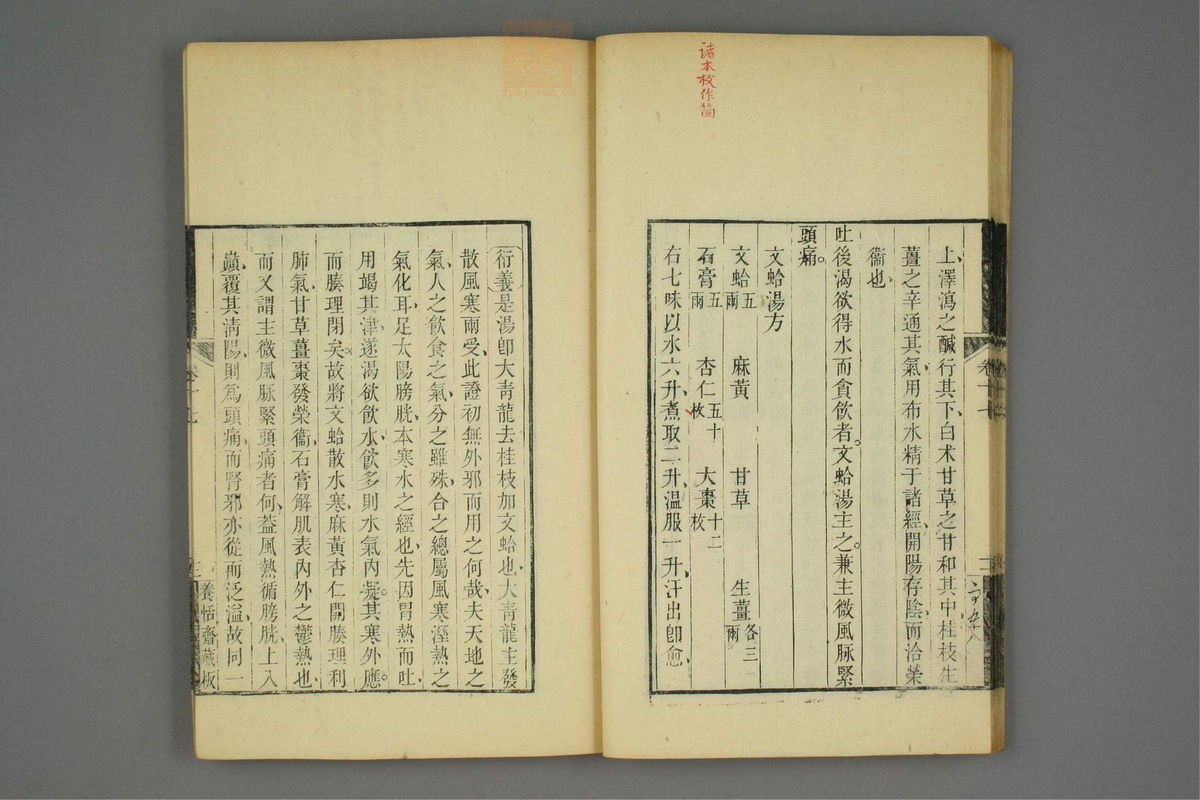 諸本枚作箇
上澤瀉之鹹行其下白术甘草之甘和其中桂枝生
薑之辛通其氣用布水精于諸經開陽存陰而洽榮
衞也
吐後渴欲得水而貪飲者文蛤湯主之兼主微風脉緊
頭痛
文蛤湯方
文蛤五兩 麻黃 甘草 生薑各三兩
石膏五兩 杏仁五十枚 大棗十二枚
右七味以水六升煮取二升温服一升汗出卽愈
衍義是湯卽大青龍去桂枝加文蛤也大青龍主發
散風寒兩受此證初無外邪而用之何哉夫天地之
氣人之飲食之氣分之雖殊合之總屬風寒溼熱之
氣化耳足太陽膀胱本寒水之經也先因胃熱而吐
用竭其津遂渴欲飲水飲多則水氣內凝其寒外應
而腠理閉矣故將文蛤散水寒麻黃杏仁開腠理利
肺氣甘草薑棗發榮衞石膏解肌表內外之鬱熱也
而又謂主微風脉緊頭痛者何葢風熱循膀胱上入
巔覆其淸陽則爲頭痛而腎邪亦從而泛溢故同一
卷十七
養恬齋藏板